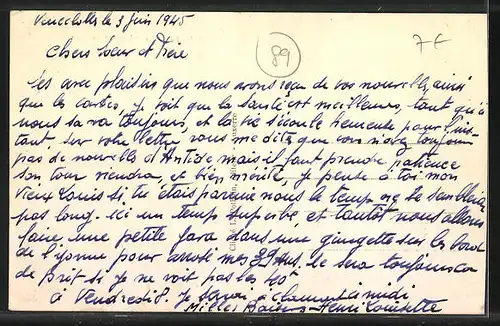 le 3 juin 1945
7 €
89
Chers Soeur et Frère
avec plaisirs que nous avons reçu de vos nouvelles, ainsi
que les cartes, je voit que la santé est meilleurs, tant qu'à
nous sa va toujours, et la vie s'écoule heureuse pour l'ins-
tant, sur votre lettre vous me dite que vous n'avez toujours
pas de nouvelles d'Antide mais il faut prendre patience
son tour viendra, et bien mérité, je pense à toi mon
vieux Louis si tu étais parmi nous le temps ne te semblerai
pas long. ici un temps superbe, et tantôt nous allons
faire une petite java dans une guinguette sur les bord
de l'Yonne pour arrosé mes 39 Ans. Ce sera toujours ça
de prit si je ne voit pas les 40
à Vendredi 8. je serai à Clamart à midi
Milles Baisers Henri Louisette